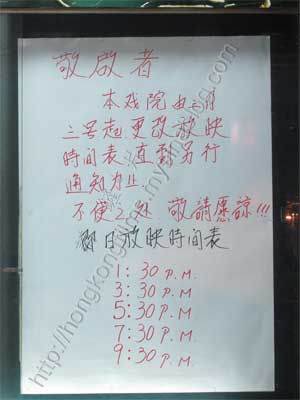 敬啟者
本戏院由三月
三号起更改放映
時間表,直到另行
通知为止.
不便之处 敬請愿諒!!!
即日放映時間表
1:30 P.M.
3:30 P.M
5:30 P.M.
7:30 P.M.
9:30 P.M.